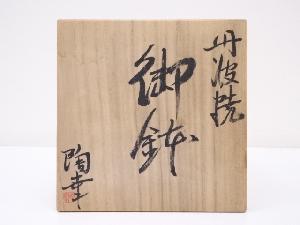 丹波焼
御鉢
陶幸